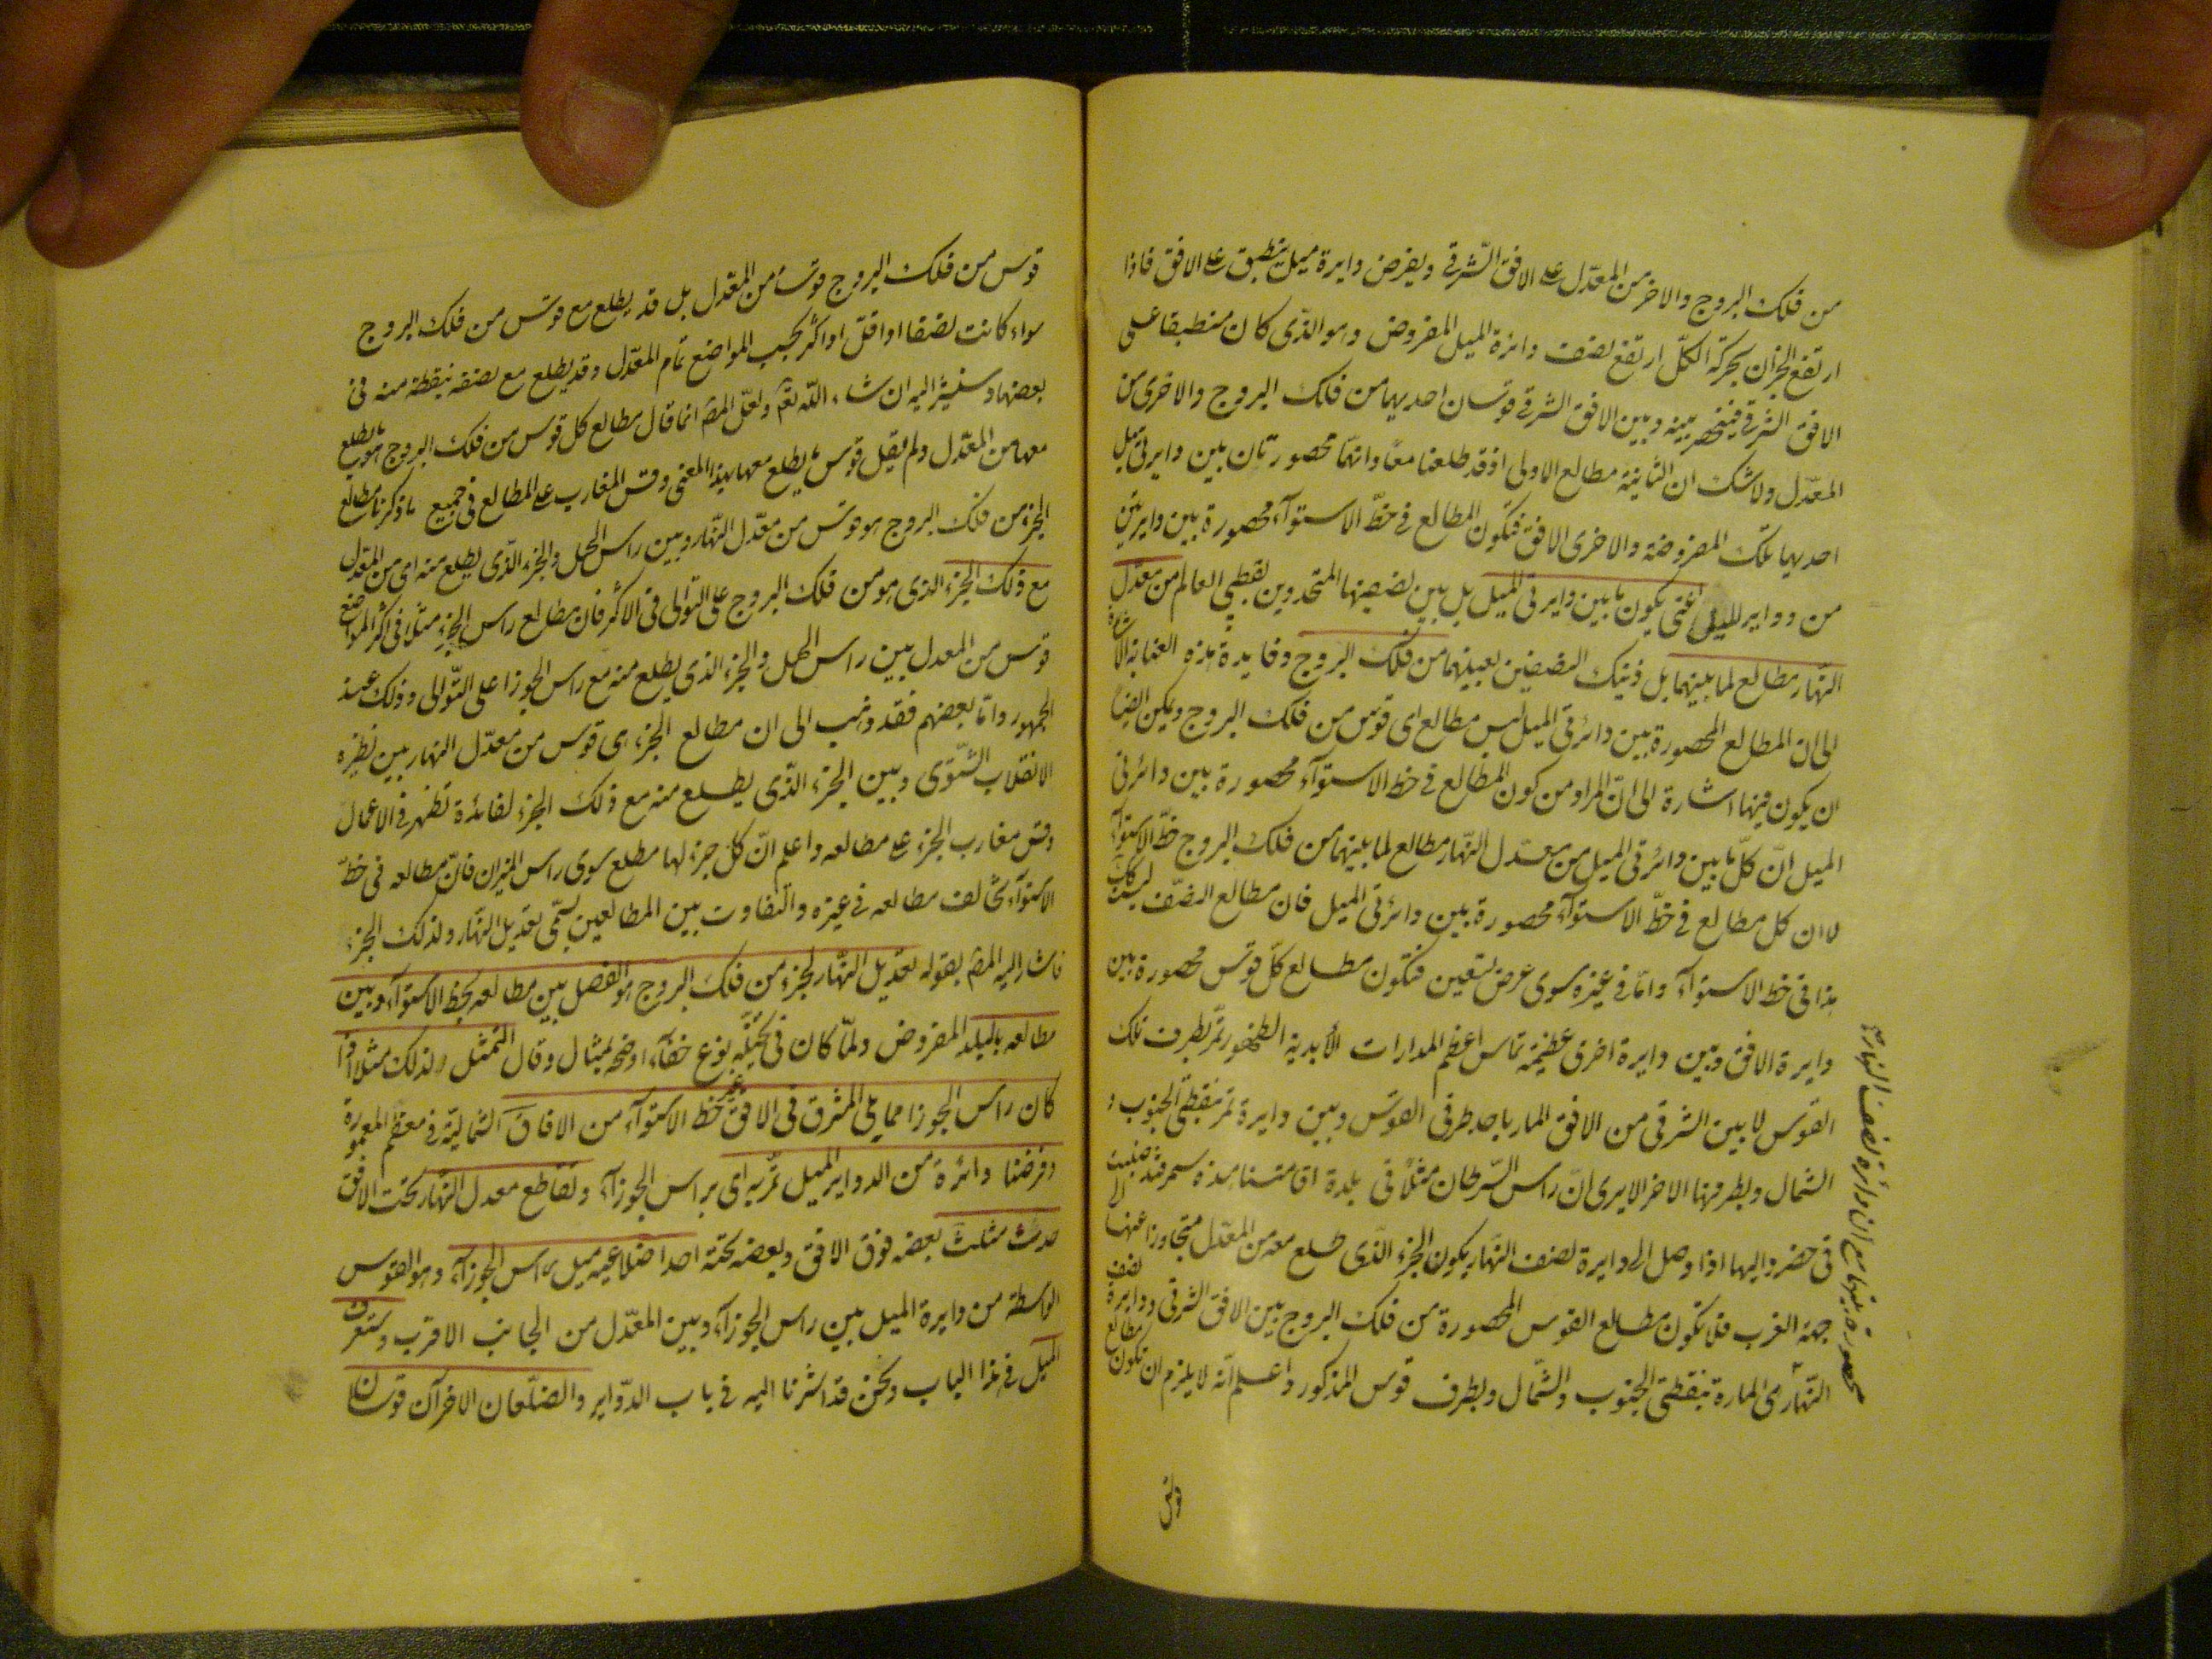 من فلك البروج والاخر من المعدّل على الافق الشّرقي ويفرض دايرة ميل ينطبق على الافق فاذا
ارتفع الجزان بحركة الكلّ ارتفع نصف دائرة الميل المفروض وهو الذّى كان منطبقا على
الافق الشرقي فينحصر بينه وبين الافق الشرقي قوسان احديهما من فلك البروج والاخرى من
المعدّل ولا شك ان الثانية مطالع الاولى اذ قد طلعتا معًا وانهما محصورتان بين دايرتى ميل
احديهما تلك المفروضة والاخرى الافق فتكون المطالع في خطّ الاستوآء محصورة بين دايرتين
من دواير الميل اعنى يكون ما بين دايرتى الميل بل بين نصفيهما المتحدّدين بقطبى العالم من معدّل
النّهار مطالع لما بينهما بل ذينك النصفين بعينهما من فلك البروج وفايدة هذه العناية الاشارة
الى ان المطالع المحصورة بين دائرتى الميل ليس مطالع اى قوس من فلك البروج ويمكن ايضا
ان يكون فيها اشارة الى انّ المراد من كون المطالع في خط الاستوآء محصورة بين دائرتى
الميل انّ كلّ ما بين دائرتى الميل من معدّل النّهار مطالع لما بينهما من فلك البروج خطّ الاستوآء
لا ان كل مطالع في خطّ الاستوآء محصورة بين دائرتى الميل فان مطالع النصّف ليست كذلك
هذا فى خط الاستوآء وامّا فى غيره سوى عرض تسعين فتكون مطالع كلّ قوس محصورة بين
دايرة الافق وبين دايرة اخرى عظيمة تماس اعظم المدارات الأبدية الظهور تمرّ بطرف تلك
القوس لا بين الشرقى من الافق المار باحد طرفى القوس وبين دايرة تمر بنقطتى الجنوب و
الشمال وبطرفها الاخر الا يرى انّ راس السّرطان مثلًا فى بلدة اقامتنا هذه سمرقند صينت
فى حضر واليها اذا وصل الى دايرة نصف النّهار يكون الجزء الذى طلع معه من المعدّل متجاوزا عنها الى
جهة الغرب فلا تكون مطالع القوس المحصورة من فلك البروج بين الافق الشرقى ودايرة نصف
النّهار اى المارة بنقطتى الجنوب والشّمال وبطرف قوس المذكور واعلم انّه لا يلزم ان تكون مطالع
محصورة بينهما مع ان دائرة نصف النهار
قوس من فلك البروج قوسًا من المعدّل بل قد يطلع مع قوس من فلك البروج
سواء كانت نصفا او اقلّ او اكثر بحسب المواضع تمام المعدّل وقد يطلع مع نصفه نقطة منه فى
بعضها وسنشير اليه ان شاء اللّه تعم ولعلّ المصَ انما قال مطالع كل قوس من فلك البروج هو ما يطلع
معها من المعدّل ولم يقل قوس ما يطلع معها لهذا المعنى وقس المغارب على المطالع فى جميع ما ذكرنا مطالع
الجزء من فلك البروج هو قوس من معدّل النّهار وبين راس الحمل والجزء الذّى يطلع منه اى من المعدّل
مع ذلك الجزء الذى هو من فلك البروج على التوالى فى الاكثر فان مطالع راس الجزء مثلًا فى اكثر المواضع
قوس من المعدل بين راس الحمل والجزء الذى يطلع منه مع راس الجوزا على التّوالى وذلك عند
الجمهور وامّا بعضهم فقد ذهب الى ان مطالع الجزء اى قوس من معدّل النهار بين نظيره
الانقلاب الشّتوى وبين الجزء الذّى يطلع منه مع ذلك الجزء لفائدة تظهر فى الاعمال
وقس مغارب الجزء على مطالعه واعلم انّ كل جزء لها مطلع سوى راس الميزان فانّ مطالعه فى خطّ
الاستوآء يخالف مطالعه فى غيره والتفاوت بين المطالعين يسمّى تعديل النّهار ولذلك الجزء
فاشار اليه المصَ بقوله تعديل النّهار لجزء من فلك البروج هو الفصل بين مطالعه بخط الاستوآء وبين
مطالعه بالبلد المفروض ولمّا كان فى تخيّله نوع خفآء اوضحه بمثال وقال التمثل ولذلك مثلا اذا
كان راس الجوزا مما يلى المشرق فى الافق غير خط الاستوآء من الافاق الشمالية فى معظم المعمورة
وفرضنا دائرة من الدواير الميل تمرّ به اى براس الجوزآء وتقاطع معدل النّهار تحت الافق
حدث مثلث بعضه فوق الافق وبعضه تحته احد اضلاعه ميل راس الجوزآء وهو القوس
الواسطة من دايرة الميل بين راس الجوزآء وبين المعدّل من الجانب الاقرب وستعرف
الميل فى هذا الباب ونحن قد اشرنا اليه فى باب الدّواير والضلّعان الاخرآن قوسان